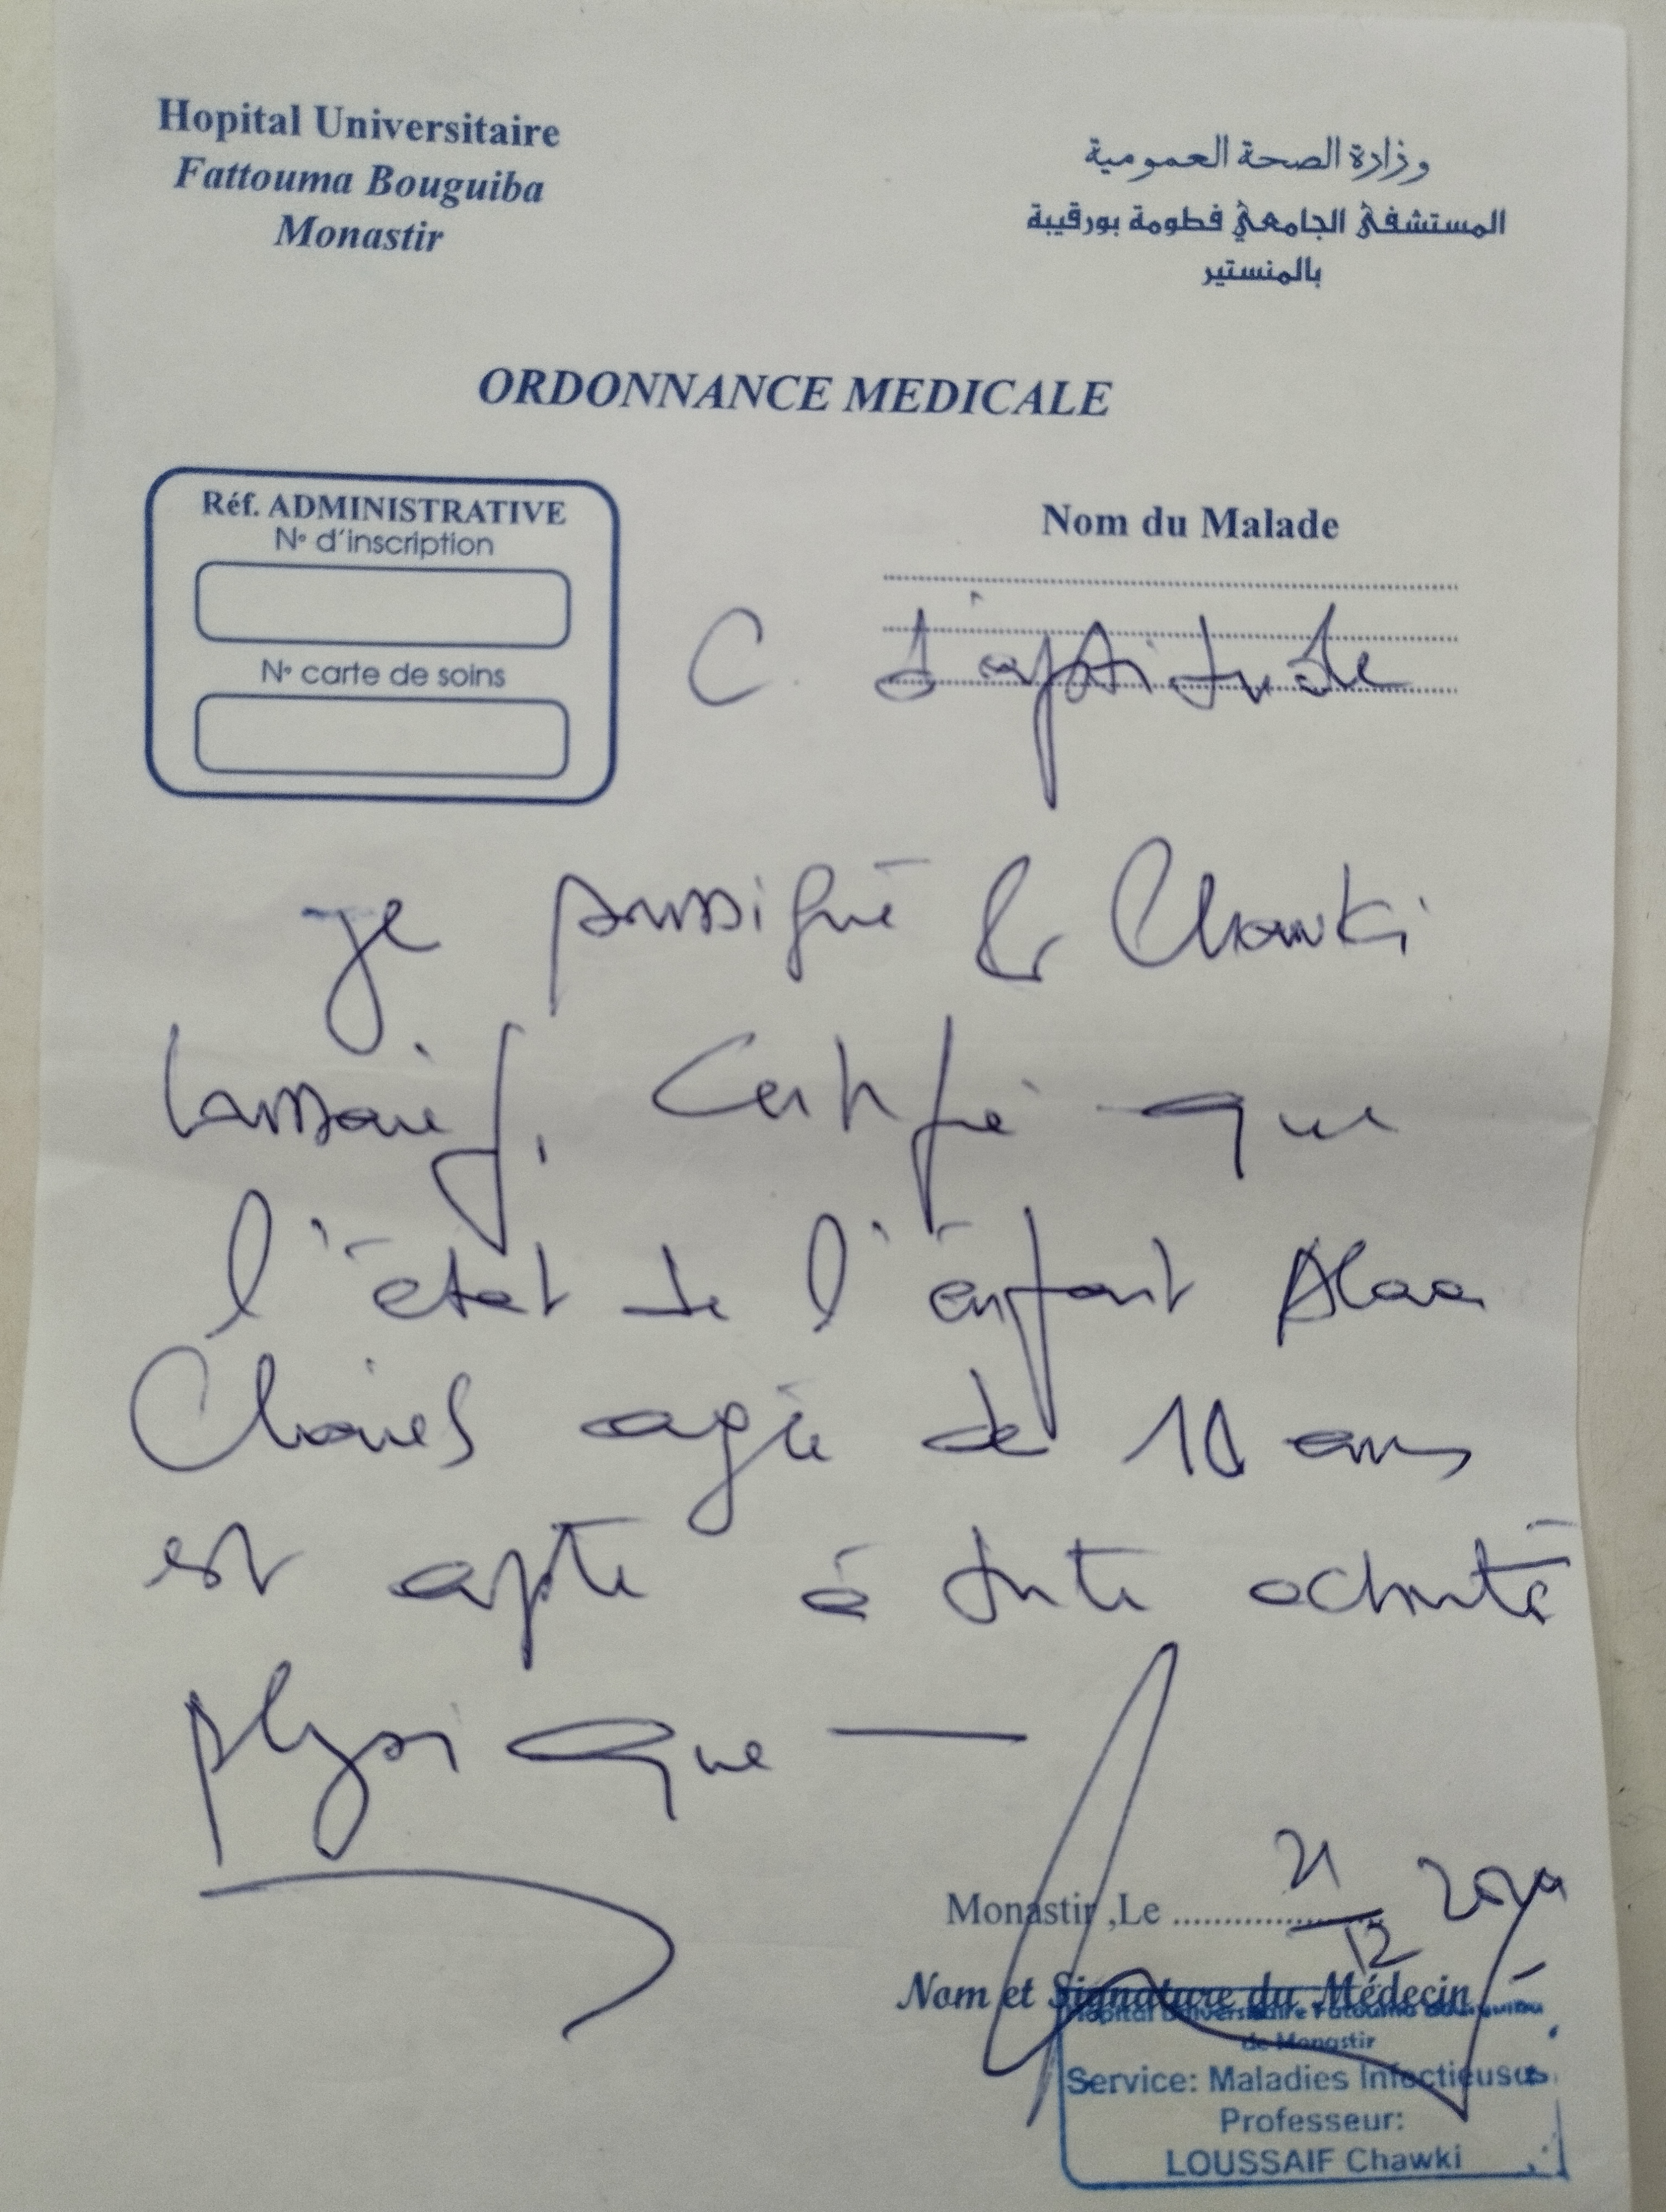 Hopital Universitaire
Fattouma Bouguiba
Monastir
وزارة الصحة العمومية
المستشفى الجامعي فطومة بورقيبة
بالمنستير
ORDONNANCE MEDICALE
Réf. ADMINISTRATIVE
N° d'inscription
N° carte de soins
Nom du Malade
C. d'aptitude
Je soussigné Dr Chawki
Loussaief, Certifie que
l'état de l'enfant Alaa
agée de 10 ans
est apte à toute activité
physique
Monastir ,Le 21/12
Nom et Signature du Médecin
Hopital Universitaire
de Monastir
Service: Maladies Infectieuses
Professeur:
LOUSSAIF Chawki